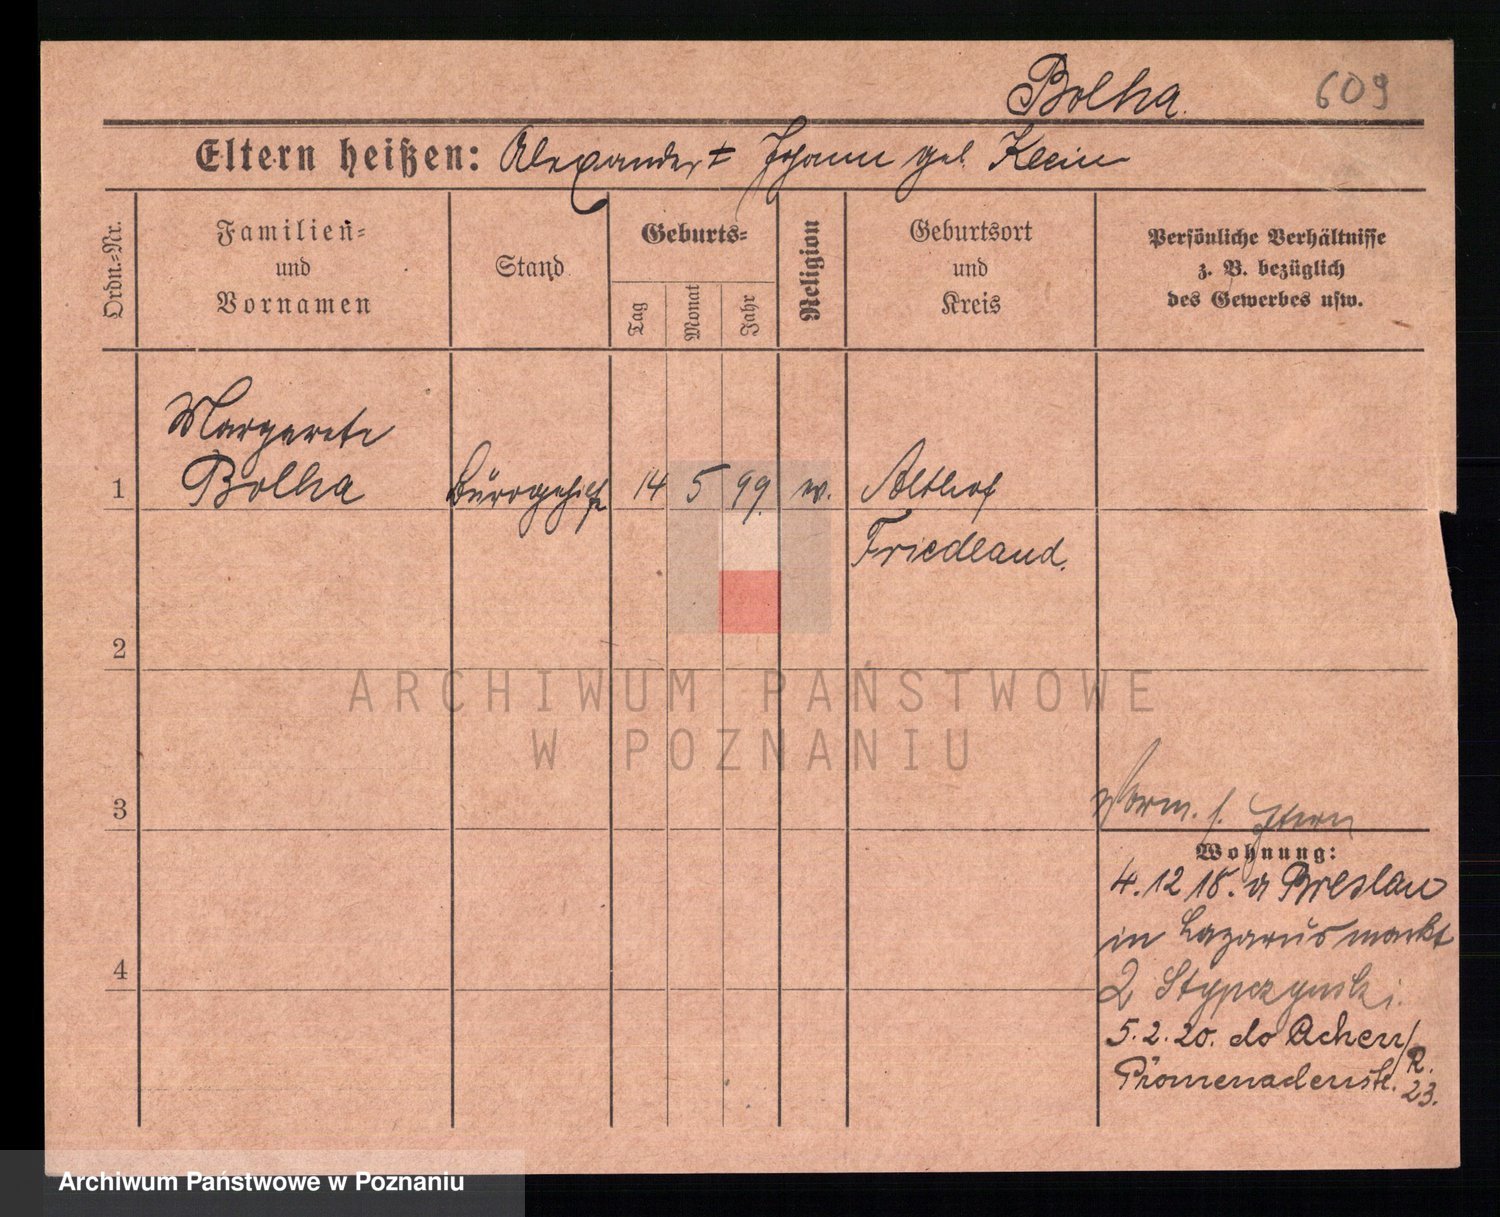 Bolha.
609
Eltern heißen: Alexander + Johann geb. Klein
Ordn.-Nr.
Familien-
und
Vornamen
Stand
Geburts-
Tag
Monat
Jahr
Religion
Geburtsort
und
Kreis
Persönliche Verhältnisse
z. B. bezüglich
des Gewerbes usw.
Margarete
1 Bolha Bürogehilf 14 5 99. ev. Althof
Friedland.
2
ARCHIWUM PAŃSTWOWE
W POZNANIU
3
Vorm. s. Eltern
Wohnung:
4. 12 18. a Breslau
in Lazarusmarkt
4
2 Stypczynski.
5. 2. 20. do Achen/R.
Promenadenstr. 23.
Archiwum Państwowe w Poznaniu